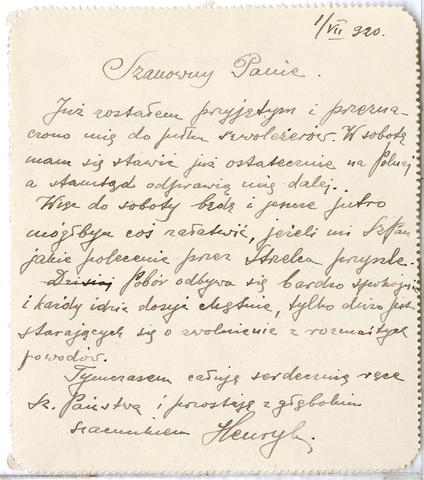 1/VII 920.
Szanowny Panie.
Już zostałem przyjętym i przezna
czono mię do pułku szwoleżerów. W sobotę
mam się stawić już ostatecznie na Polnej
a stamtąd odprawią mię dalej..
Więc do soboty będę i jeszcze jutro
mógłbym coś załatwić, jeżeli mi Sz Pan
jakie polecenie przez Strelca przyszle.
Dzisiaj Pobór odbywa się bardzo spokojnie
i każdy idzie dosyć chętnie, tylko dużo jest
starających się o zwolnienie z rozmaitych
powodów.
Tymczasem całuję serdecznie ręce
Sz. Państwa i pozostaję z głębokim
szacunkiem Henryk.